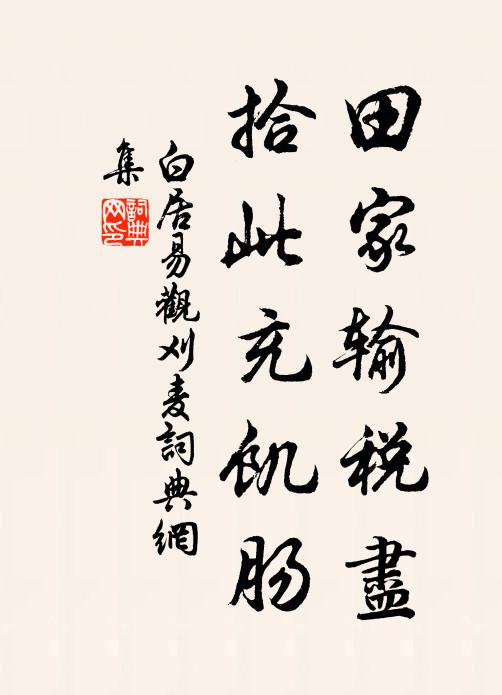 田家输税盡
拾此充飢肠
白居易觀刈麦詞典網
集
詞典
网印